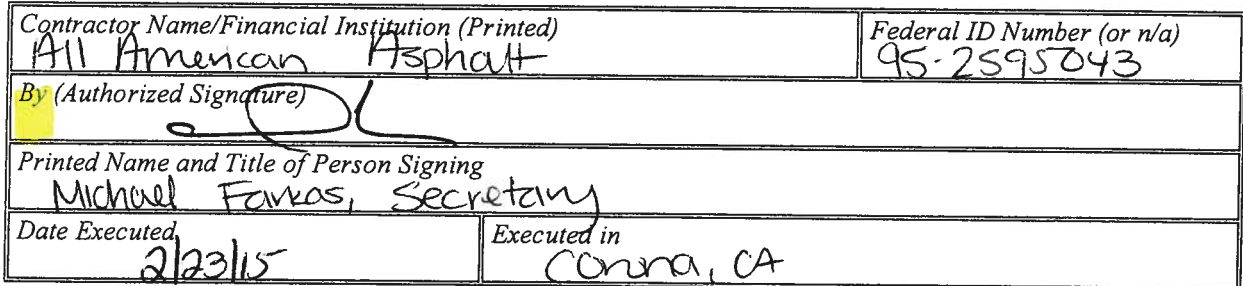 Contractor Name/Financial Institution (Printed)
All American Asphalt
Federal ID Number (or n/a)
95-2595043
By (Authorized Signature)
Printed Name and Title of Person Signing
Michael Farkas, Secretary
Date Executed
2/23/15
Executed in
Corona, CA